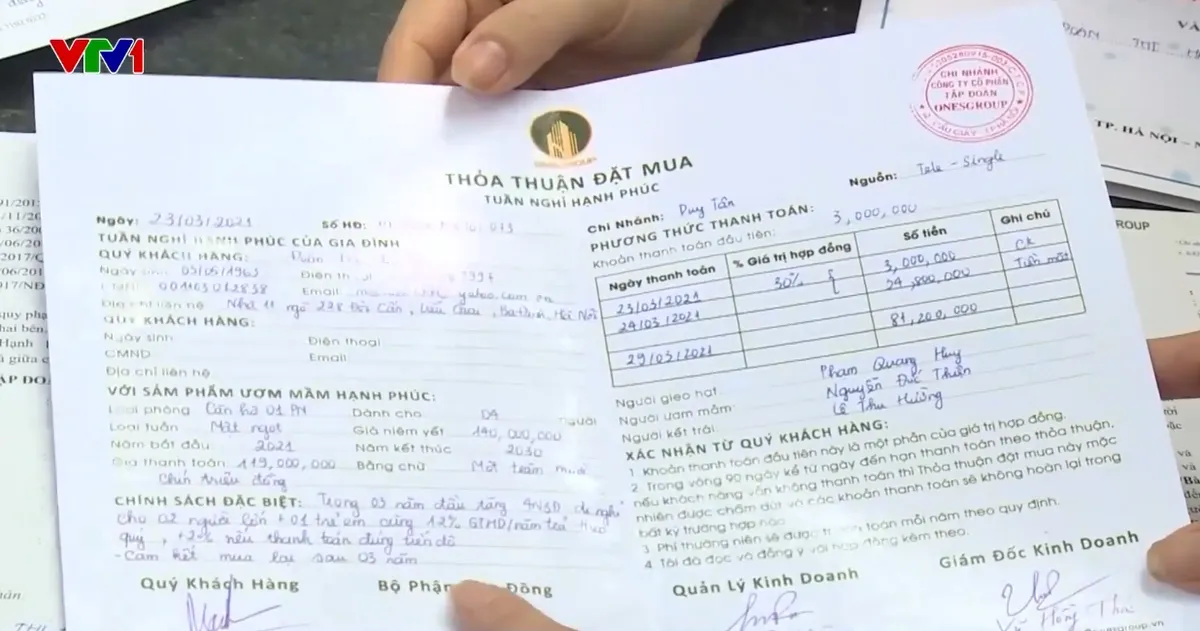 VTV1
CHI NHÁNH
CÔNG TY CỔ PHẦN
TẬP ĐOÀN
ONESGROUP
Q. CẦU GIẤY - TP. HÀ NỘI
TP. HÀ NỘI
THỎA THUẬN ĐẶT MUA
TUẦN NGHỈ HẠNH PHÚC
Ngày: 23/03/2021 Số HĐ:
TUẦN NGHỈ HẠNH PHÚC CỦA GIA ĐÌNH
QUÝ KHÁCH HÀNG:
Ngày sinh Điện thoại
001163012838 Email yahoo.com.vn
Địa chỉ liên hệ Nhà 11 ngõ 278 Đội Cấn, Ba Đình, Hà Nội
QUÝ KHÁCH HÀNG:
Ngày sinh Điện thoại
CMND Email
Địa chỉ liên hệ
VỚI SẢN PHẨM ƯƠM MẦM HẠNH PHÚC:
Loại phòng Căn hộ 01 PN Dành cho 04 người
Loại tuần Mật ngọt Giá niêm yết 140,000,000
Năm bắt đầu 2021 Năm kết thúc 2030
Giá thanh toán 119,000,000 Bằng chữ Một trăm mười
Chín triệu đồng
CHÍNH SÁCH ĐẶC BIỆT: Trong 03 năm đầu tặng 4N3D
cho 02 người lớn + 01 trẻ em cùng 12% GTHĐ/năm trả theo
quý, +2% nếu thanh toán đúng tiến độ
- Cam kết mua lại sau 03 năm
Quý Khách Hàng Bộ Phận Đồng
Nguồn: Tele - Single
Chi Nhánh: Duy Tân
PHƯƠNG THỨC THANH TOÁN:
Khoản thanh toán đầu tiên: 3,000,000
Ngày thanh toán % Giá trị hợp đồng Số tiền Ghi chú
23/03/2021 30% 3,000,000 CK
24/03/2021 34,800,000 Tiền mặt
29/03/2021 81,200,000
Người gieo hạt: Phạm Quang Huy
Người ươm mầm: Nguyễn Đức Thiện
Người kết trái: Lê Thu Hường
XÁC NHẬN TỪ QUÝ KHÁCH HÀNG:
1. Khoản thanh toán đầu tiên này là một phần của giá trị hợp đồng.
2. Trong vòng 90 ngày kể từ ngày đến hạn thanh toán theo thỏa thuận,
nếu khách hàng vẫn không thanh toán thì Thỏa thuận đặt mua này mặc
nhiên được chấm dứt và các khoản thanh toán sẽ không hoàn lại trong
bất kỳ trường hợp nào.
3. Phí thường niên sẽ được thanh toán mỗi năm theo quy định.
4. Tôi đã đọc và đồng ý với hợp đồng kèm theo.
Quản Lý Kinh Doanh Giám Đốc Kinh Doanh